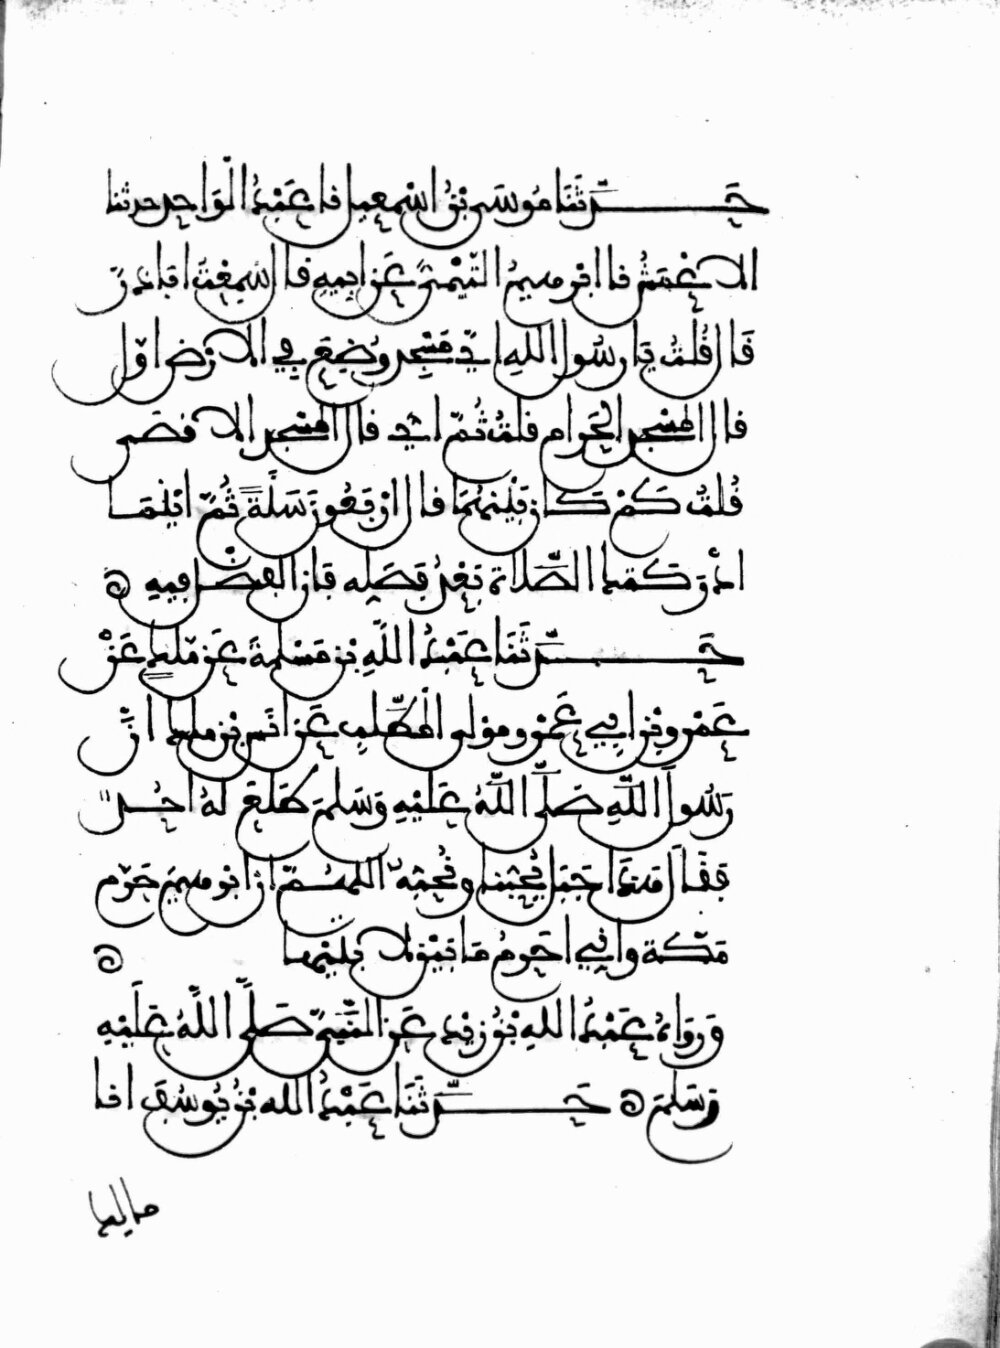 حَدَّثَنَا مُوسَى بْنُ اسْمعِيل قال عَبْدُ الْوَاحِدِ حدثنا
الاعْمَشُ قال ابْرهيمُ التَّيْمِيُّ عَن ابِيهِ قال سَمِعْتُ ابَا ذَرٍّ
قَال قُلْتُ يَا رسُول اللهِ ايُّ مَسْجِدٍ وُضِعَ فِي الارْضِ اوّلُ
قال المَسْجِد الحَرام قلتُ ثُمّ ايّ قال المَسْجِد الاقصَى
قُلْتُ كَمْ كَانَ بَيْنَهُمَا قال ارْبَعُونَ سَنَةً ثُمّ ايْنَمَا
ادْرَكَتْكَ الصَّلَاة بَعْدُ فَصَلِّه فَإن الفَضْلَ فِيهِ
حَدَّثَنَا عَبْدُ اللَّهِ بْن مَسْلَمَةَ عَن مٰلكٍ عَنْ
عَمْرو بْن ابِي عَمْرٍو مَوْلَى الْمُطَّلِبِ عَن انَس بْن ملك انَّ
رَسُولَ اللَّهِ صَلَّى اللَّهُ عَلَيْهِ وَسَلَّمَ طَلَعَ لَهُ احُدٌ
فَقَالَ هَذَا جَبَل يُحِبُّنا ونُحِبُّه اللهُمّ ان ابْرهيمَ حَرّم
مَكّة وإنِّي احَرِّمُ مَا بَيْنَ لابَتَيْها
وَرَوَاهُ عَبْدُ اللهِ بْنُ زيْدٍ عَن النَّبِيِّ صَلَّى اللَّهُ عَلَيْهِ
وَسَلَّمَ حَدَّثَنَا عَبْدُ الله بْنُ يُوسُفَ انا
مالك